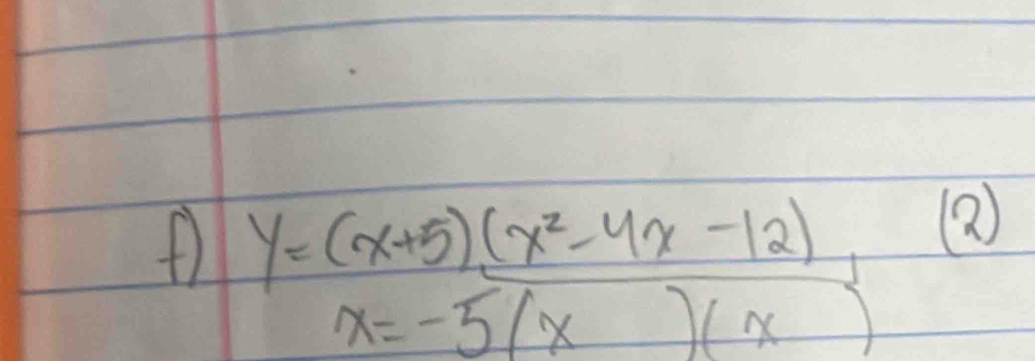 f) y=(x+5)(x²-4x-12) (2)
x=-5(x )(x )